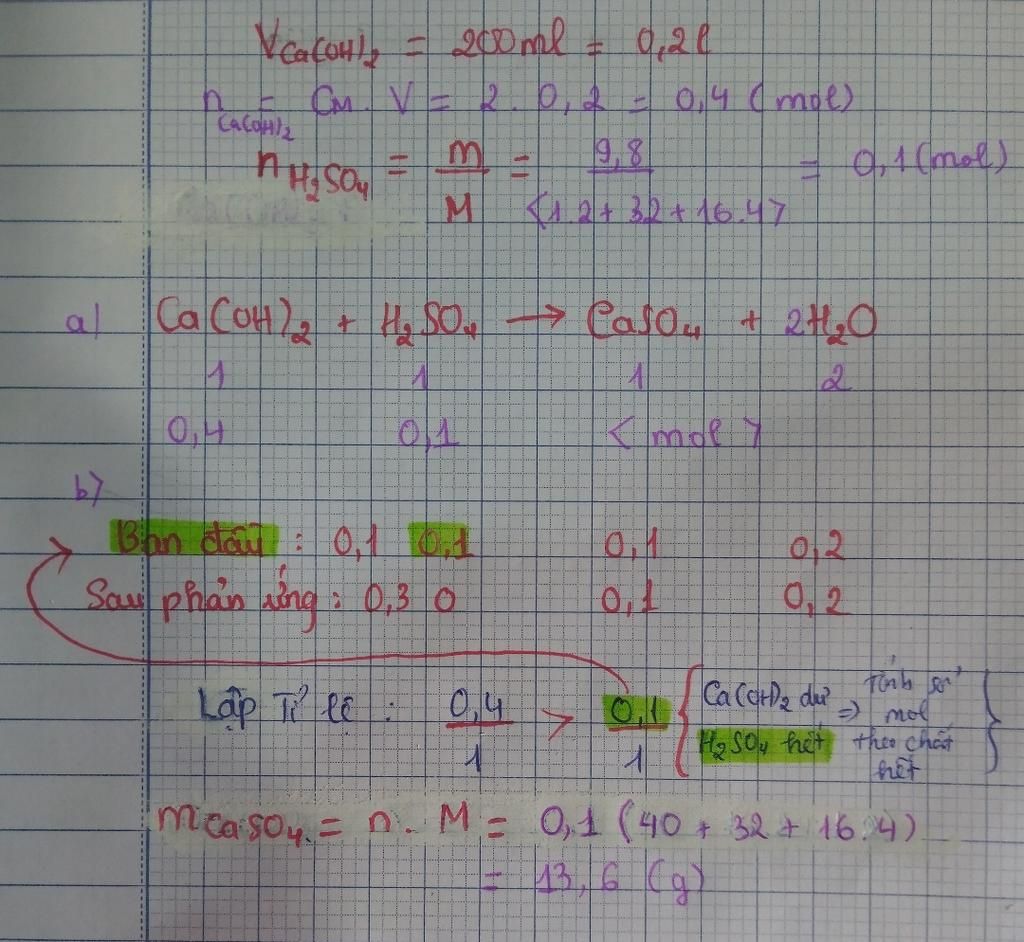 V Ca(OH)₂ = 200ml = 0,2l
n Ca(OH)₂ = CM. V = 2. 0,2 = 0,4 (mol)
n H₂SO₄ = m/M = 9,8/<1.2+32+16.4> = 0,1 (mol)
a) Ca(OH)₂ + H₂SO₄ → CaSO₄ + 2H₂O
1 1 1 2
0,4 0,1 <mol>
b)
Ban đầu : 0,1 0,1 0,1 0,2
Sau phản ứng : 0,3 0 0,1 0,2
Lập Tỉ lệ : 0,4/1 > 0,1/1 { Ca(OH)₂ dư => Tính số mol
H₂SO₄ hết theo chất hết }
m CaSO₄ = n. M = 0,1 (40 + 32 + 16.4)
= 13,6 (g)